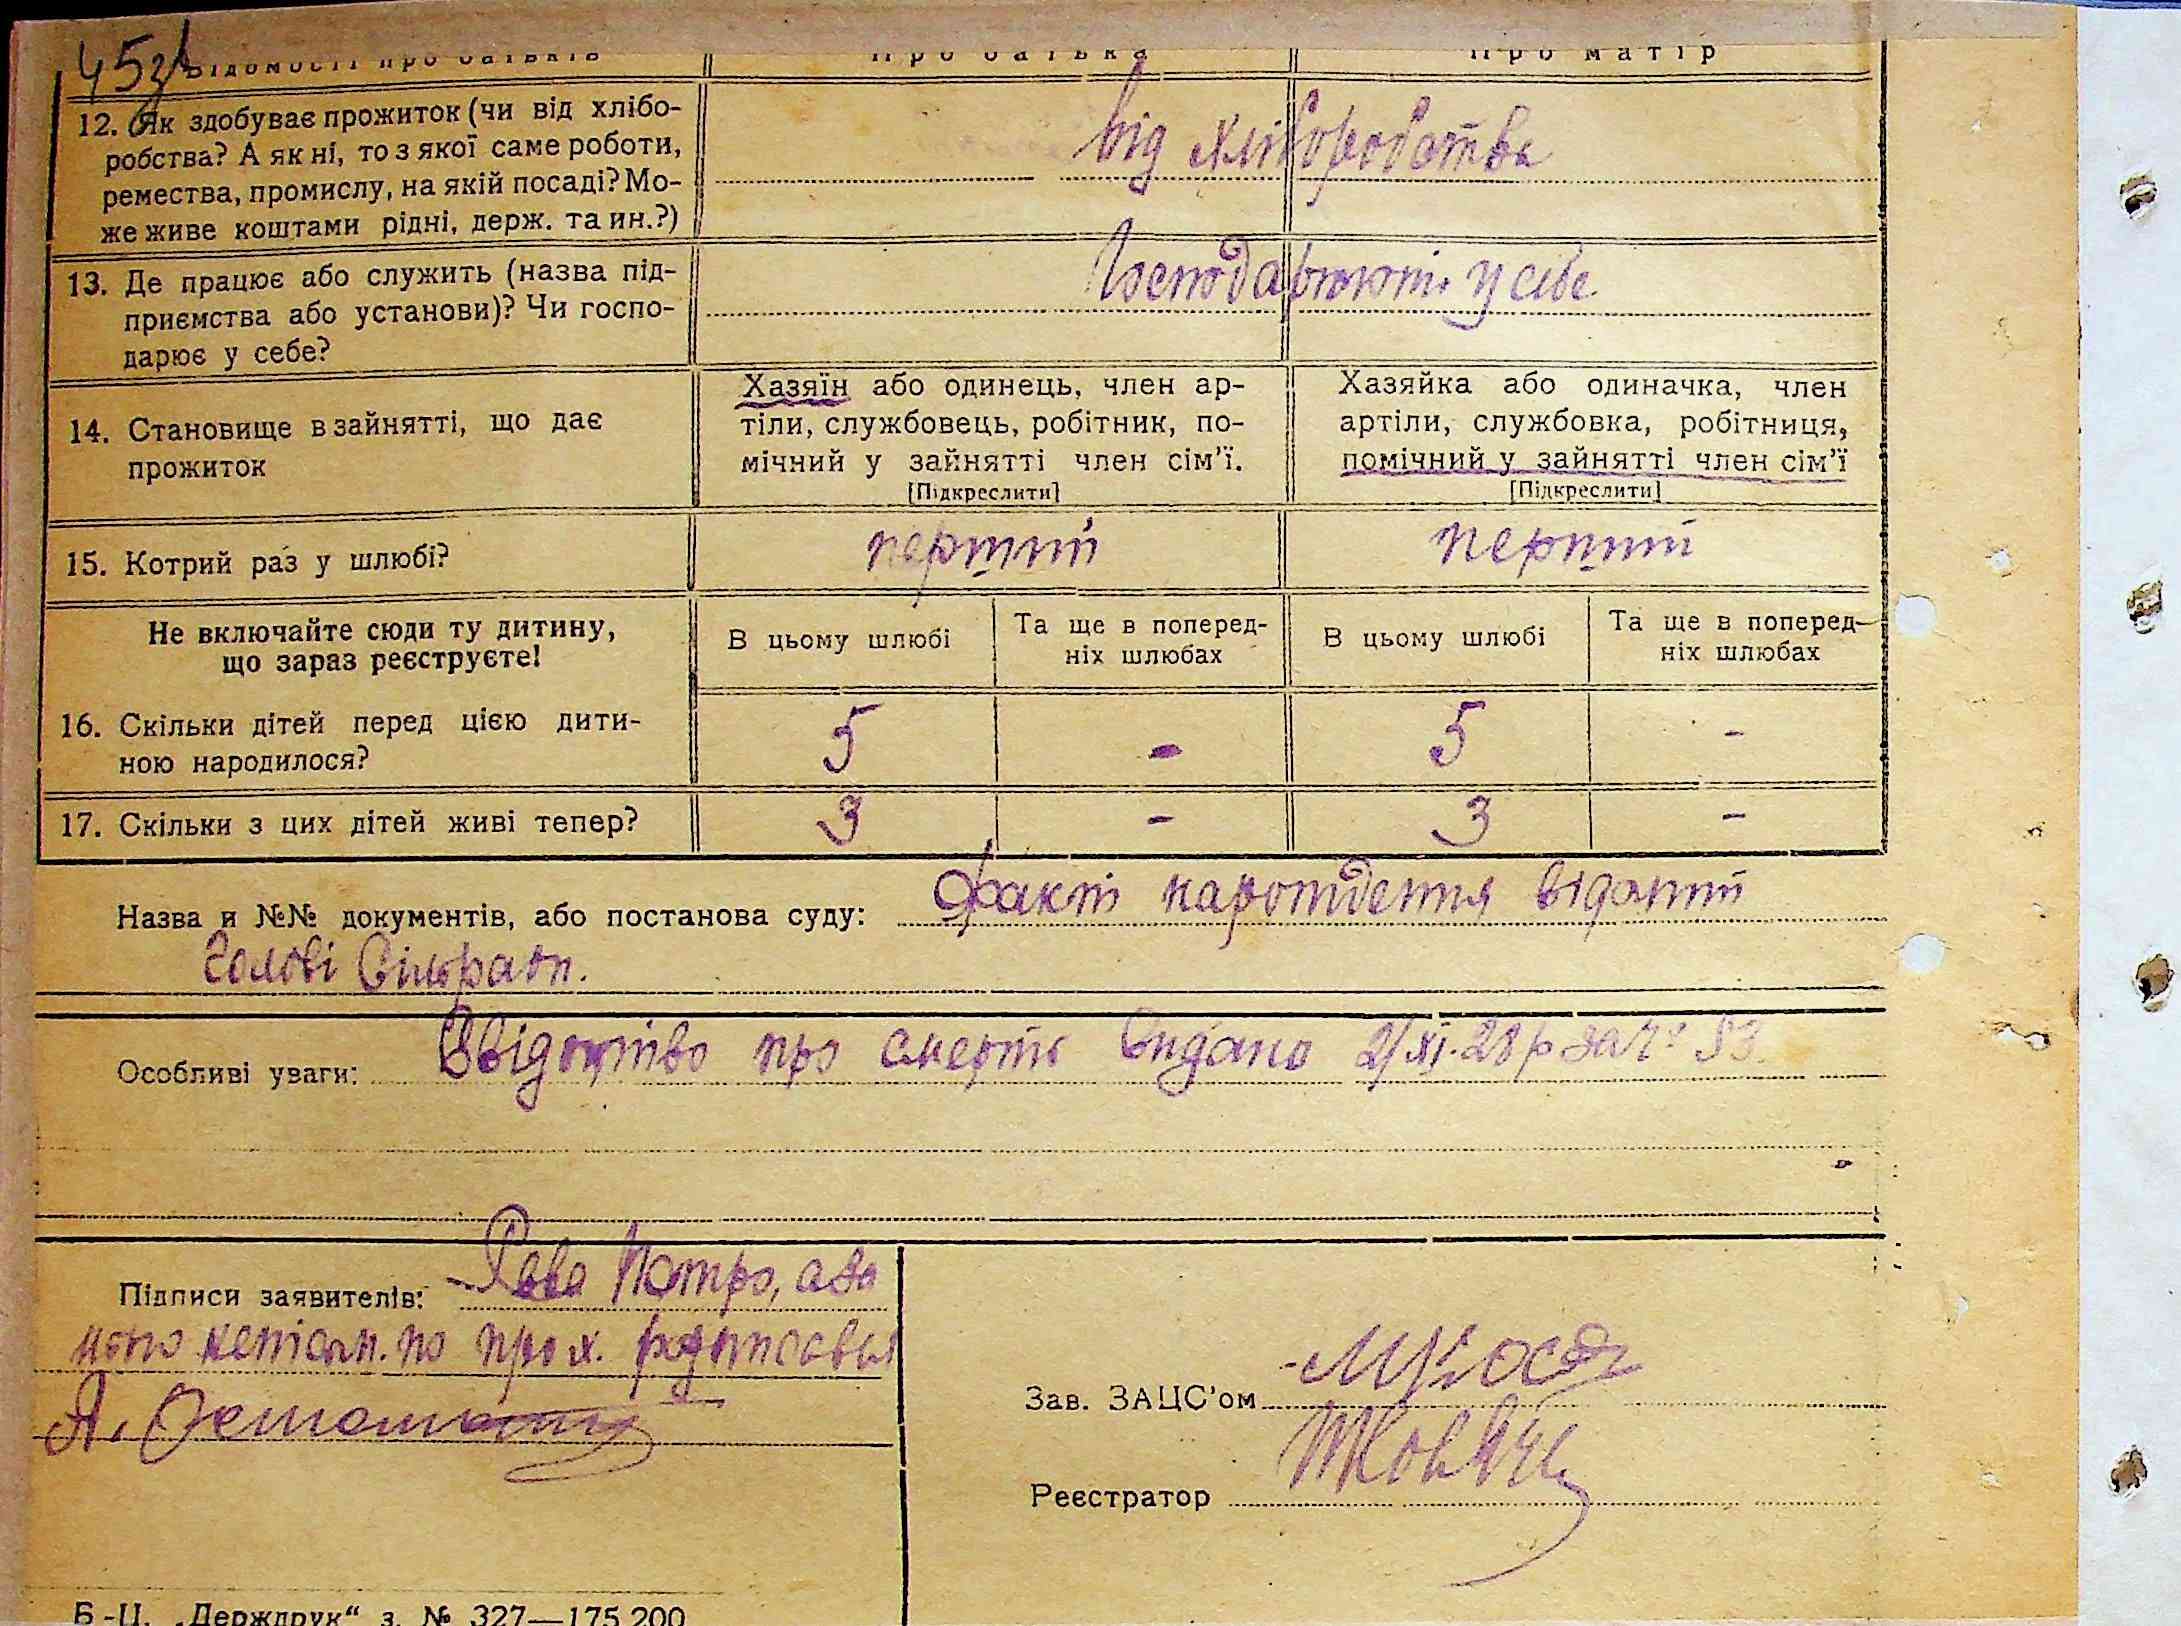 45зв
Відомості про батьків Про батька Про матір
12. Як здобуває прожиток (чи від хлібо-
робства? А як ні, то з якої саме роботи,
ремества, промислу, на якій посаді? Мо-
же живе коштами рідні, держ. та ин.?)
від хліборобства
13. Де працює або служить (назва під-
приємства або установи)? Чи госпо-
дарює у себе?
Господарюють у сібе
14. Становище в зайнятті, що дає
прожиток
Хазяїн або одинець, член ар-
тіли, службовець, робітник, по-
мічний у зайнятті член сім'ї.
[Підкреслити]
Хазяйка або одиначка, член
артіли, службовка, робітниця,
помічний у зайнятті член сім'ї
[Підкреслити]
15. Котрий раз у шлюбі? перший перший
Не включайте сюди ту дитину,
що зараз реєструєте!
В цьому шлюбі
Та ще в поперед-
ніх шлюбах
В цьому шлюбі
Та ще в поперед-
ніх шлюбах
16. Скільки дітей перед цією дити-
ною народилося?
5 - 5 -
17. Скільки з цих дітей живі тепер? 3 - 3 -
Назва и №№ документів, або постанова суду: Факт народження відомий
Голові Сільради.
Особливі уваги: Свідоцтво про смерть видано 2/XI.28 р за № 53.
Підписи заявителів: Рева Петро, а за
його неписьм. по прох. розписався
Зав. ЗАЦС'ом
Реєстратор
Б-Ц. „Держдрук“ з. № 327—175.200